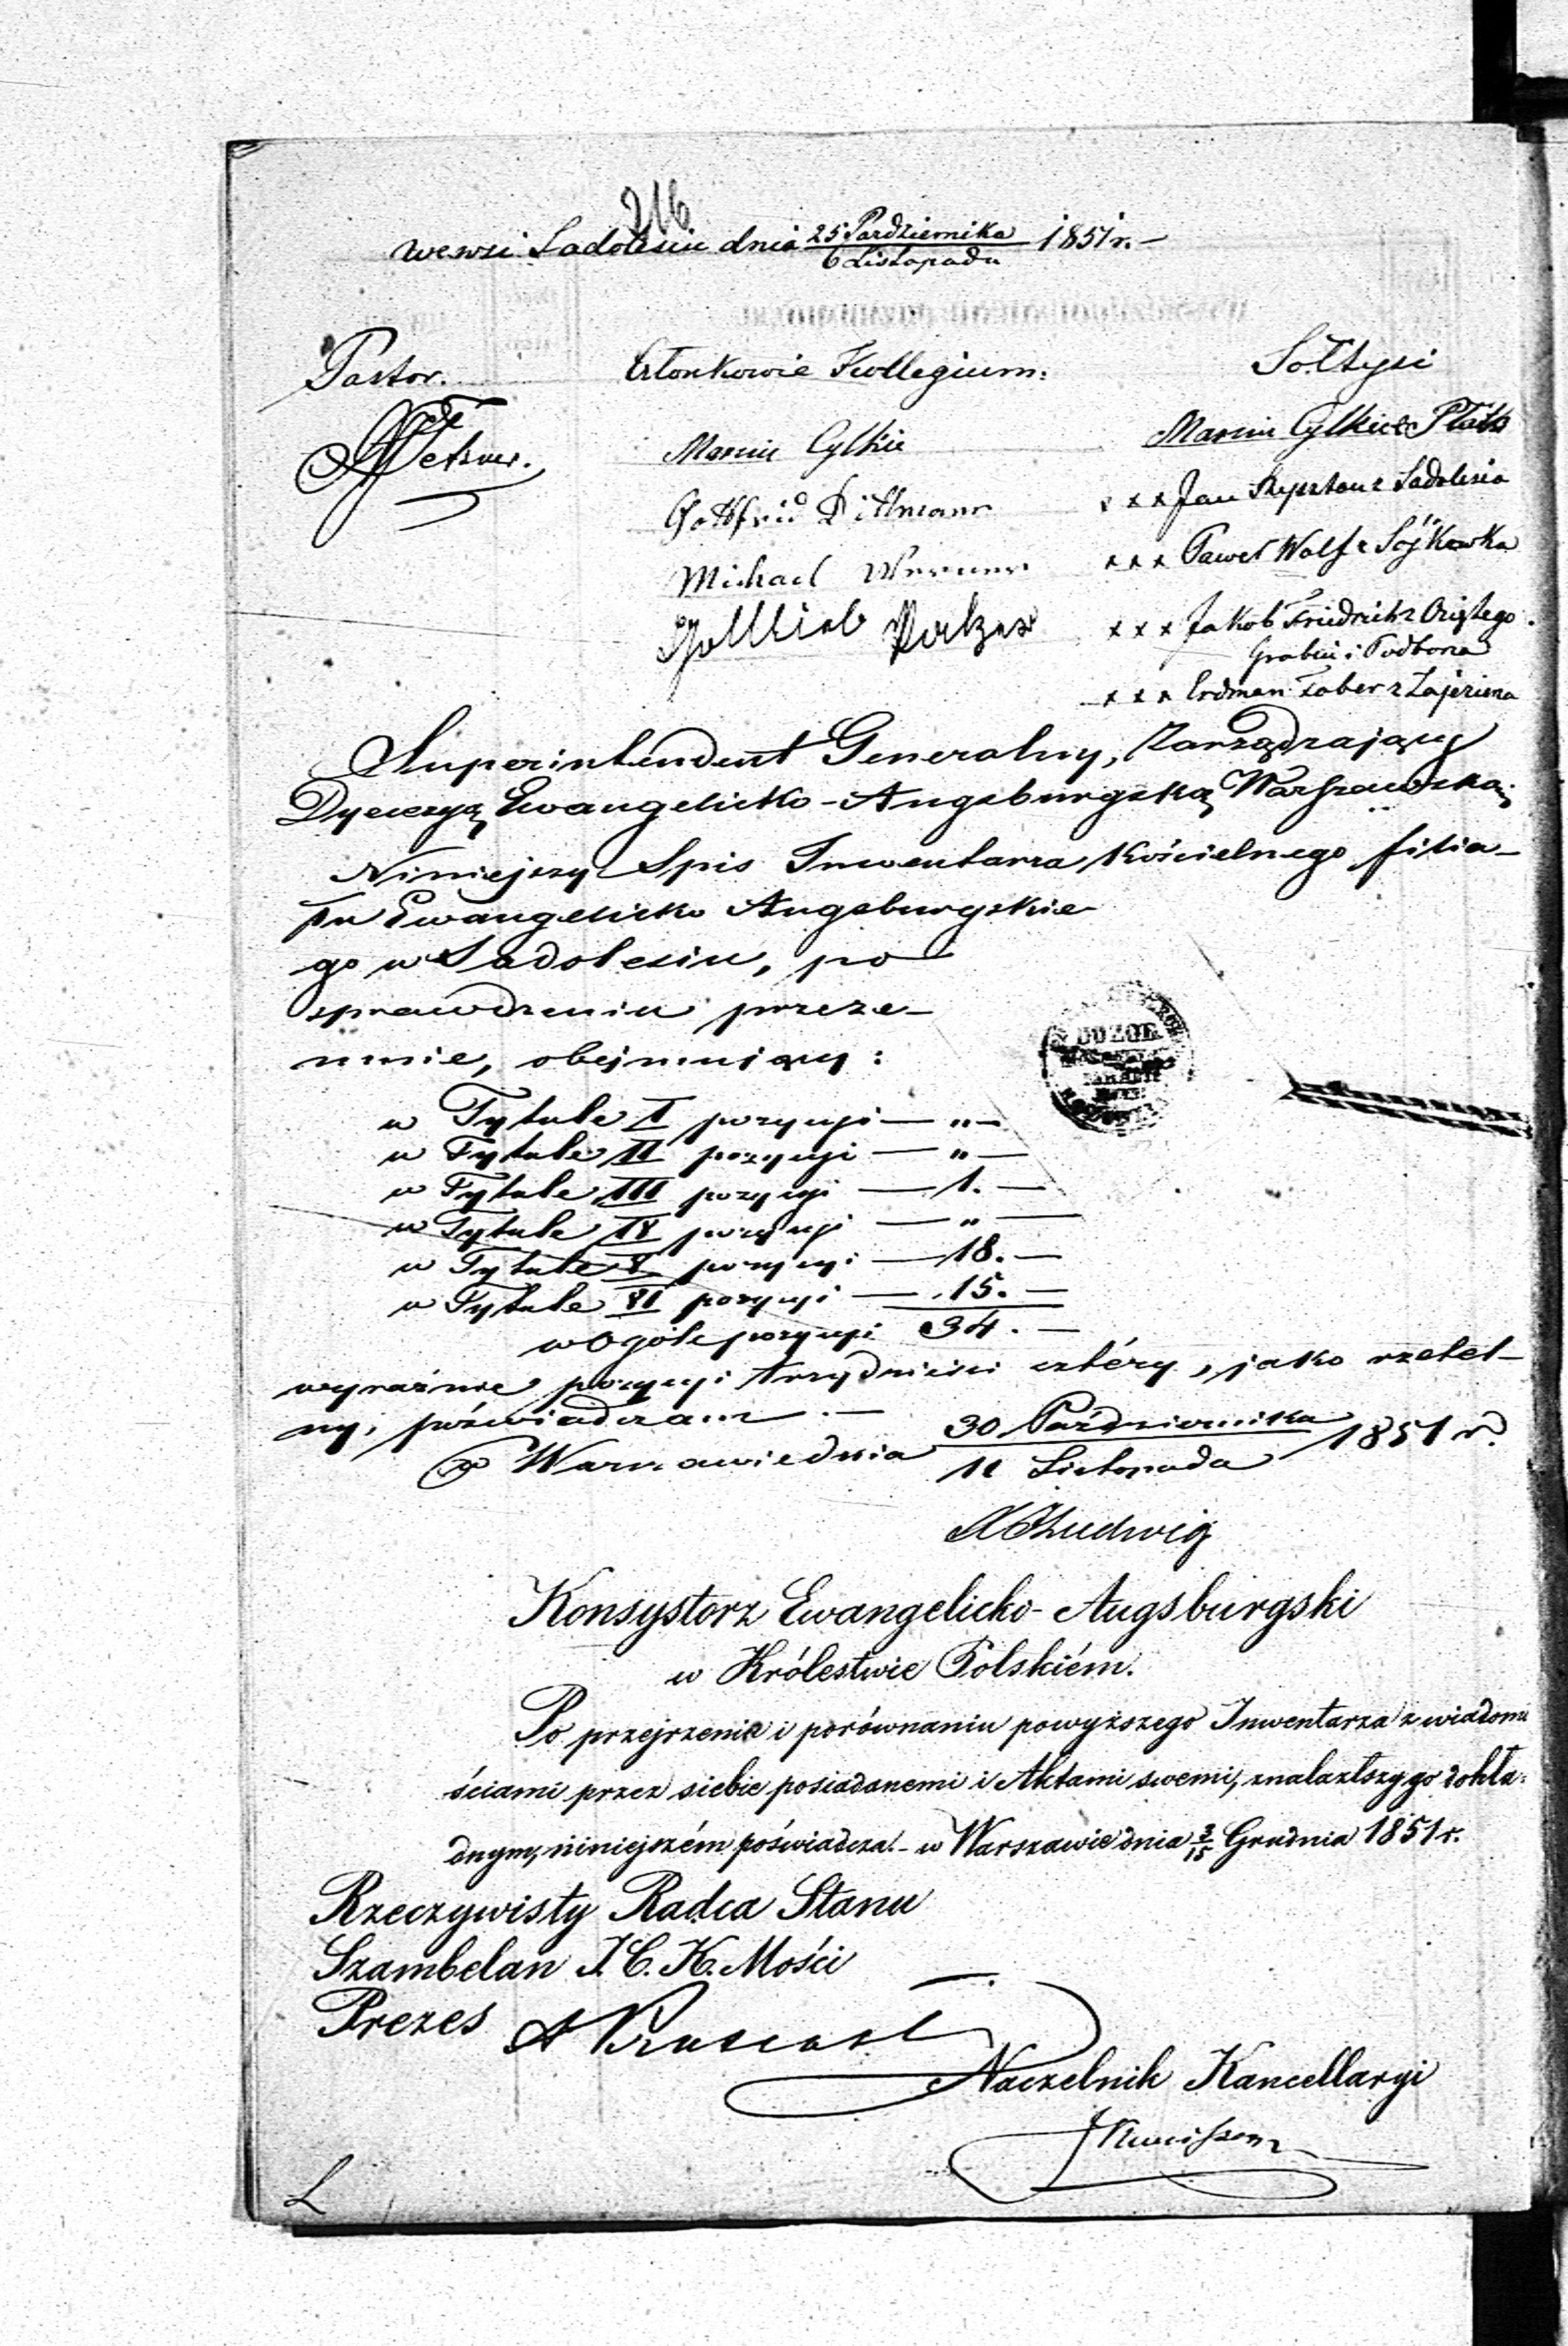 216
we wsi Sadolesiu dnia 25 Pazdziernika / 6 Listopada 1851 r. –
Pastor. Członkowie Kollegium: Sołtysi
Marcin Cylkie Marcin Cylkie z Płatk
Gottfrid Dittmann x x x Jan z Sadolesia
Michael Werner x x x Paweł Wolf z Sójkowka
Gottlieb x x x Jakob Friedrich z Czystego
Grabin i Podbora
x x x Erdman Faber z Zajeziera
Superintendent Generalny, Zarządzający
Dyecezyą Ewangelicko-Augsburgską Warszawską,
Niniejszy Spis Inwentarza kościelnego filia-
łu Ewangelicko Augsburgskie
go w Sadolesiu, po
sprawdzeniu przeze-
mnie, obejmujący:
DOZOR
w Tytule I pozycyi — „ —
w Tytule II pozycyi — „ —
w Tytule III pozycyi — 1. —
w Tytule IV pozycyi — „ —
w Tytule V pozycyi — 18. —
w Tytule VI pozycyi — 15. —
w Ogóle pozycyi 34. —
wyraźnie pozycyi trzydzieści cztéry, jako rzetel-
ny, poświadczam. —
w Warszawie dnia 30 Października / 11 Listopada 1851 r.
Ludwig
Konsystorz Ewangelicko-Augsburgski
w Królestwie Polskiém.
Po przejrzeniu i porównaniu powyższego Inwentarza z wiadomo
ściami przez siebie posiadanemi i Aktami swemi, znalazłszy go dokła=
dnym, niniejszém poświadcza. – w Warszawie dnia 3/15 Grudnia 1851 r.
Rzeczywisty Radca Stanu
Szambelan J. C. K. Mości
Prezes
Naczelnik Kancellaryi
L